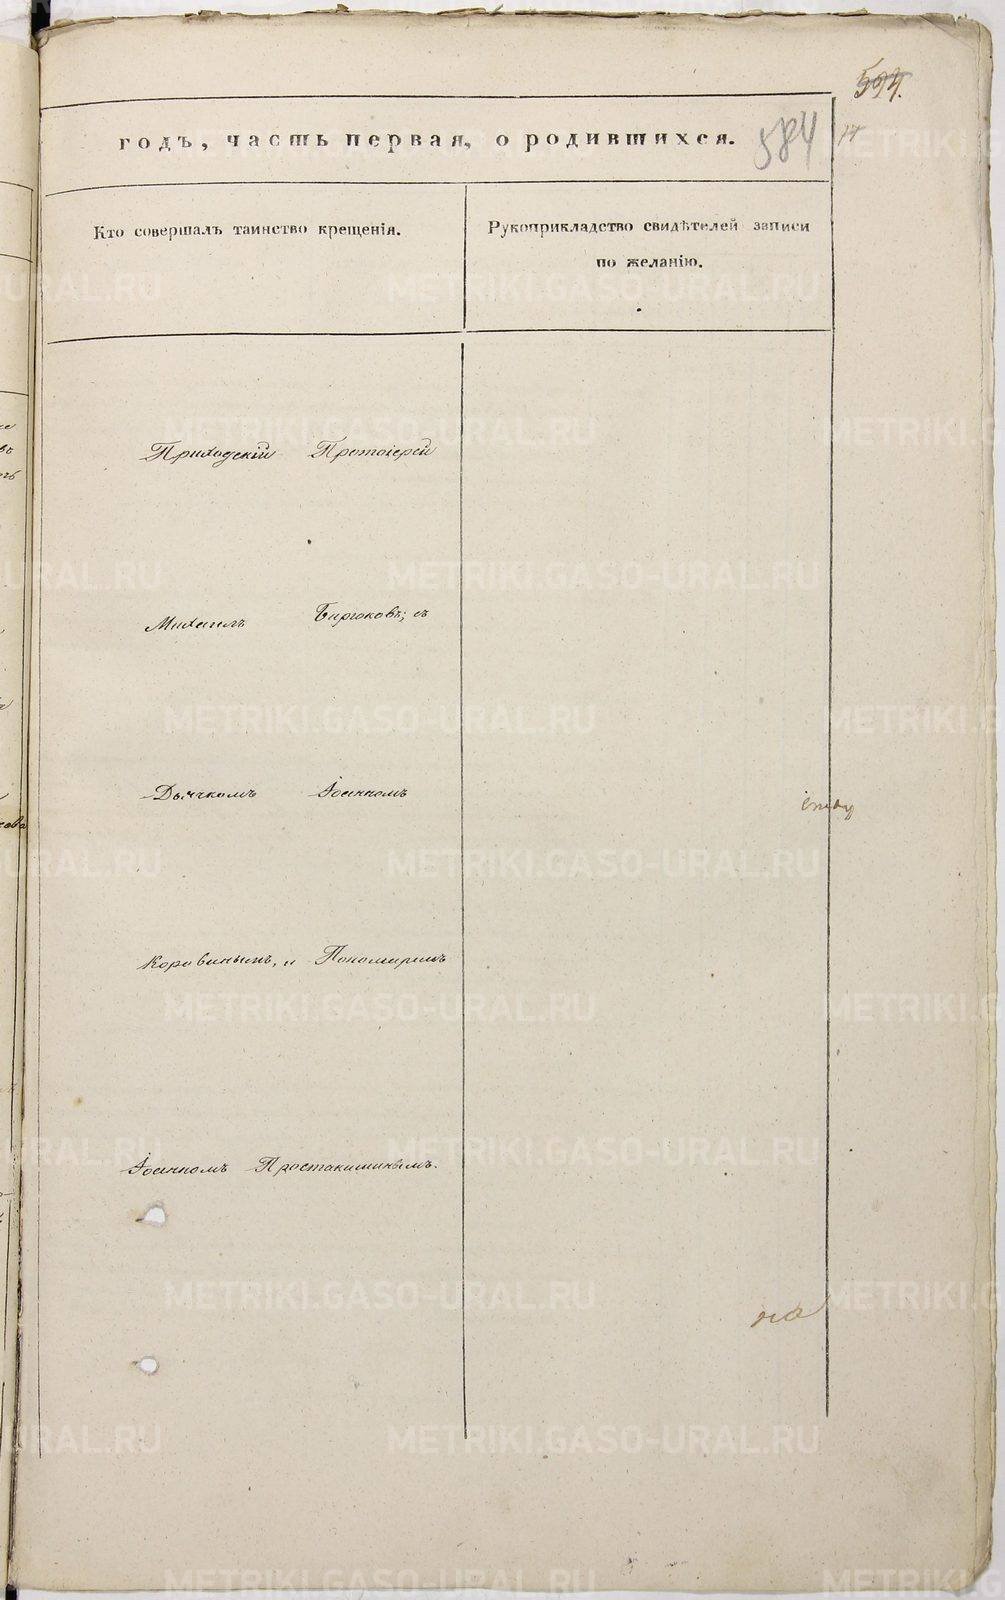 594.
годъ, часть первая, о родившихся.
584
17
Кто совершалъ таинство крещенія.
Рукоприкладство свидѣтелей записи
по желанію.
Приходскій Протоіерей
Михаилъ Бирюковъ; съ
Дьячкомъ Іоанномъ
Коровинымъ, и Пономаремъ
Іоанномъ Простакишинымъ.
METRIKI.GASO-URAL.RU